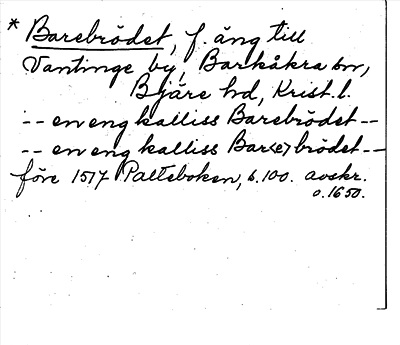 * Barebrödet, f. äng till
Vantinge by, Barkåkra sn,
Bjäre hd, Krist. l.
-- en eng kalliss Barebrödet --
-- en eng kalliss Bar<e>brödet --
före 1517 Palteboken, s. 100. avskr.
o. 1650.